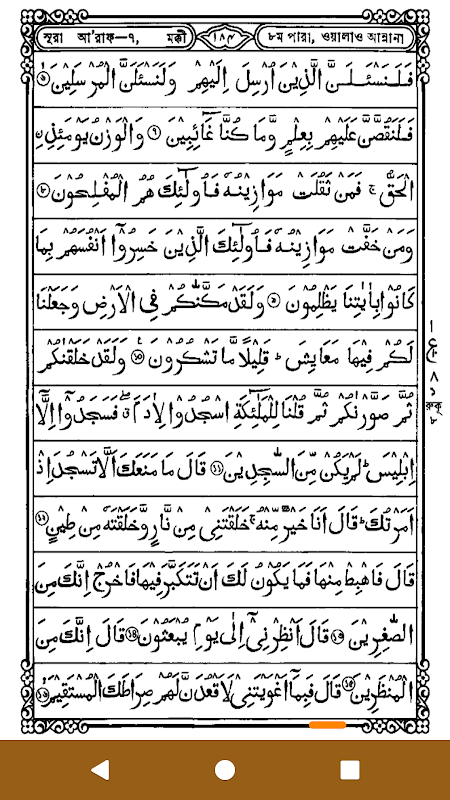 সূরা আ'রাফ—৭, মক্কী ১৮৪ ৮ম পারা, ওয়ালাও আন্নানা
فَلَنَسْئَلَنَّ الَّذِيْنَ اُرْسِلَ اِلَيْهِمْ وَلَنَسْئَلَنَّ الْمُرْسَلِيْنَ ۙ
فَلَنَقُصَّنَّ عَلَيْهِمْ بِعِلْمٍ وَّمَا كُنَّا غَآئِبِيْنَ ۞ وَالْوَزْنُ يَوْمَئِذِنِ
الْحَقُّ ۚ فَمَنْ ثَقُلَتْ مَوَازِيْنُهٗ فَاُولٰٓئِكَ هُمُ الْمُفْلِحُوْنَ ۞
وَمَنْ خَفَّتْ مَوَازِيْنُهٗ فَاُولٰٓئِكَ الَّذِيْنَ خَسِرُوْٓا اَنْفُسَهُمْ بِمَا
كَانُوْا بِاٰيٰتِنَا يَظْلِمُوْنَ ۞ وَلَقَدْ مَكَّنّٰكُمْ فِى الْاَرْضِ وَجَعَلْنَا
لَكُمْ فِيْهَا مَعَايِشَ ؕ قَلِيْلًا مَّا تَشْكُرُوْنَ ۞ وَلَقَدْ خَلَقْنٰكُمْ
ثُمَّ صَوَّرْنٰكُمْ ثُمَّ قُلْنَا لِلْمَلٰٓئِكَةِ اسْجُدُوْا لِاٰدَمَ ۖ فَسَجَدُوْٓا اِلَّآ
اِبْلِيْسَ ؕ لَمْ يَكُنْ مِّنَ السّٰجِدِيْنَ ۞ قَالَ مَا مَنَعَكَ اَلَّا تَسْجُدَ اِذْ
اَمَرْتُكَ ؕ قَالَ اَنَا خَيْرٌ مِّنْهُ ۚ خَلَقْتَنِىْ مِنْ نَّارٍ وَّخَلَقْتَهٗ مِنْ طِيْنٍ ۞
قَالَ فَاهْبِطْ مِنْهَا فَمَا يَكُوْنُ لَكَ اَنْ تَتَكَبَّرَ فِيْهَا فَاخْرُجْ اِنَّكَ مِنَ
الصّٰغِرِيْنَ ۞ قَالَ اَنْظِرْنِىْٓ اِلٰى يَوْمِ يُبْعَثُوْنَ ۞ قَالَ اِنَّكَ مِنَ
الْمُنْظَرِيْنَ ۞ قَالَ فَبِمَآ اَغْوَيْتَنِىْ لَاَقْعُدَنَّ لَهُمْ صِرَاطَكَ الْمُسْتَقِيْمَ ۞
١
ع
٨
রুকু
৮